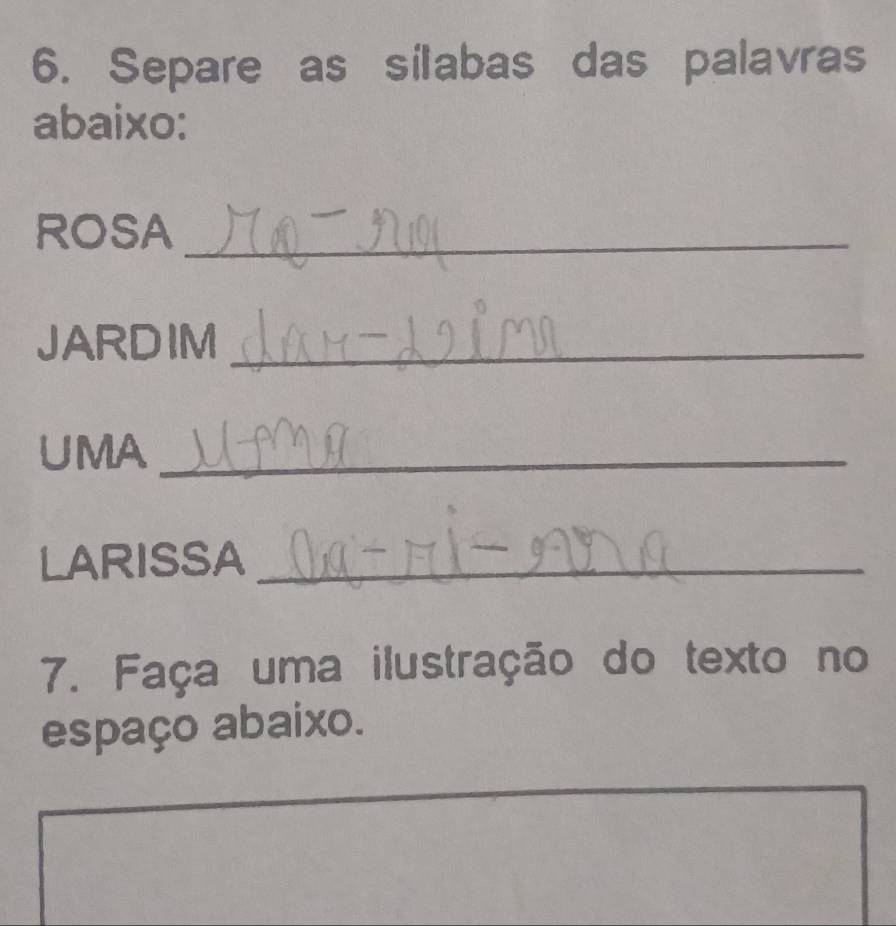 6. Separe as sílabas das palavras
abaixo:
ROSA
JARDIM
UMA u-ma
LARISSA
7. Faça uma ilustração do texto no
espaço abaixo.